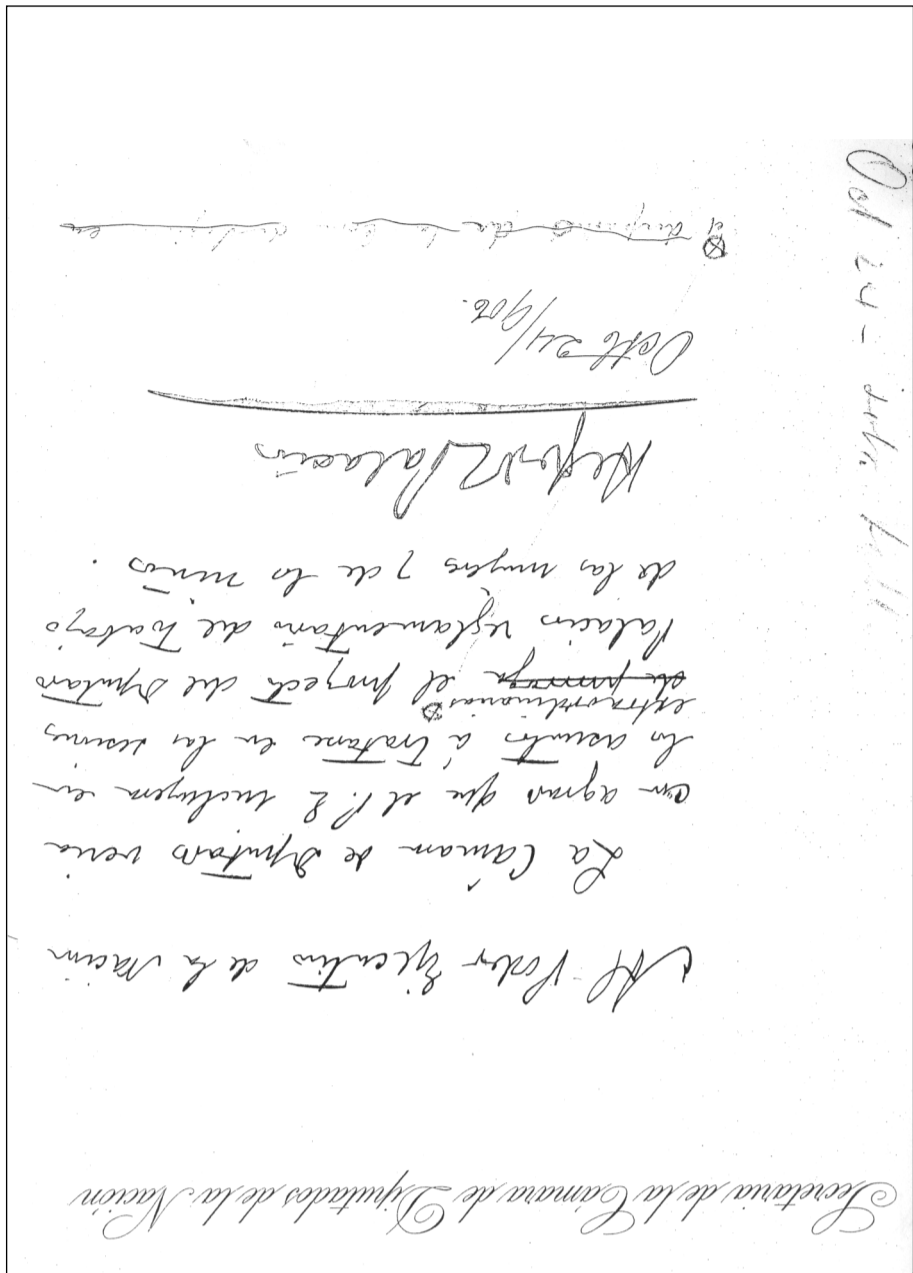 Secretaria de la Cámara de Diputados de la Nación
Al Poder Ejecutivo de la Nacion
La Cámara de Diputados veria
con agrado que el P. E incluyera en
los asuntos á tratarse en las sesiones
extraordinarias ⊗
de prorroga el proyecto del Diputado
Palacios reglamentario del trabajo
de las mujeres y de los niños.
Alfredo L Palacios
Octb 24/906.
⊗ el
de la
Oct 24 -